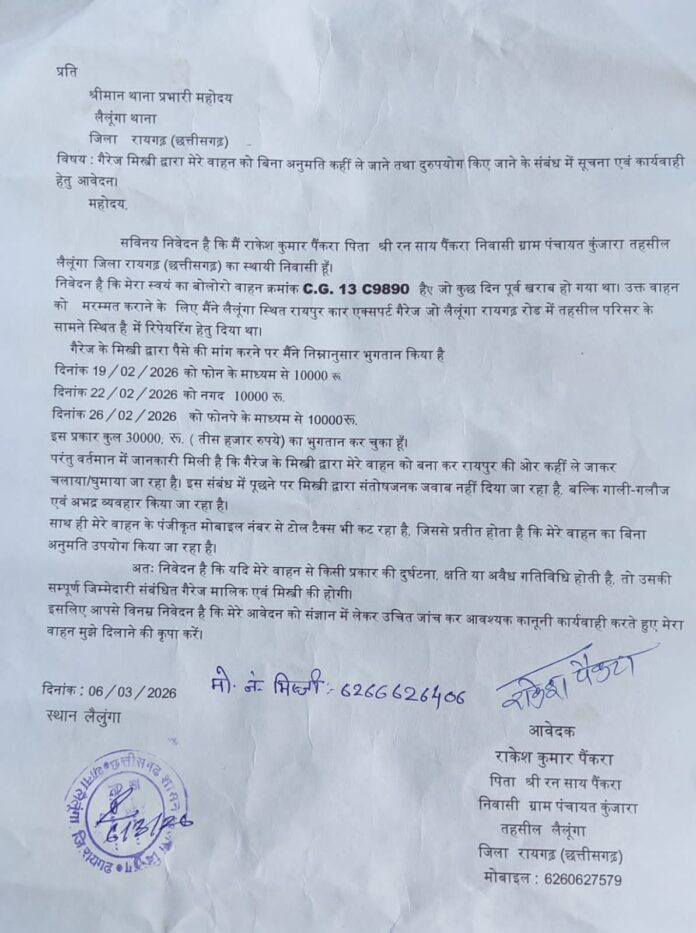 प्रति
श्रीमान थाना प्रभारी महोदय
लैलूंगा थाना
जिला रायगढ़ (छत्तीसगढ़)
विषय : गैरेज मिस्त्री द्वारा मेरे वाहन को बिना अनुमति कहीं ले जाने तथा दुरुपयोग किए जाने के संबंध में सूचना एवं कार्यवाही
हेतु आवेदन।
महोदय,
सविनय निवेदन है कि मैं राकेश कुमार पैंकरा पिता श्री रन साय पैंकरा निवासी ग्राम पंचायत कुंजारा तहसील
लैलूंगा जिला रायगढ़ (छत्तीसगढ़) का स्थायी निवासी हूँ।
निवेदन है कि मेरा स्वयं का बोलोरो वाहन क्रमांक C.G. 13 C9890 हैए जो कुछ दिन पूर्व खराब हो गया था। उक्त वाहन
को मरम्मत कराने के लिए मैंने लैलूंगा स्थित रायपुर कार एक्सपर्ट गैरेज जो लैलूंगा रायगढ़ रोड में तहसील परिसर के
सामने स्थित है में रिपेयरिंग हेतु दिया था।
गैरेज के मिस्त्री द्वारा पैसे की मांग करने पर मैंने निम्नानुसार भुगतान किया है
दिनांक 19/02/2026 को फोन के माध्यम से 10000 रू.
दिनांक 22/02/2026 को नगद 10000 रू.
दिनांक 26/02/2026 को फोनपे के माध्यम से 10000रू.
इस प्रकार कुल 30000. रू. ( तीस हजार रुपये) का भुगतान कर चुका हूँ।
परंतु वर्तमान में जानकारी मिली है कि गैरेज के मिस्त्री द्वारा मेरे वाहन को बना कर रायपुर की ओर कहीं ले जाकर
चलाया/घुमाया जा रहा है। इस संबंध में पूछने पर मिस्त्री द्वारा संतोषजनक जवाब नहीं दिया जा रहा है, बल्कि गाली-गलौज
एवं अभद्र व्यवहार किया जा रहा है।
साथ ही मेरे वाहन के पंजीकृत मोबाइल नंबर से टोल टैक्स भी कट रहा है, जिससे प्रतीत होता है कि मेरे वाहन का बिना
अनुमति उपयोग किया जा रहा है।
अतः निवेदन है कि यदि मेरे वाहन से किसी प्रकार की दुर्घटना, क्षति या अवैध गतिविधि होती है, तो उसकी
सम्पूर्ण जिम्मेदारी संबंधित गैरेज मालिक एवं मिस्त्री की होगी।
इसलिए आपसे विनम्र निवेदन है कि मेरे आवेदन को संज्ञान में लेकर उचित जांच कर आवश्यक कानूनी कार्यवाही करते हुए मेरा
वाहन मुझे दिलाने की कृपा करें।
दिनांक : 06/03/2026
मो. नं. मिस्त्री :- 6266626406
राकेश पैंकरा
स्थान लैलुंगा
आवेदक
राकेश कुमार पैंकरा
पिता श्री रन साय पैंकरा
निवासी ग्राम पंचायत कुंजारा
तहसील लैलूंगा
जिला रायगढ़ (छत्तीसगढ़)
मोबाइल : 6260627579
छत्तीसगढ़ शासन
थाना लैलूंगा जि.रायगढ़
6/3/26